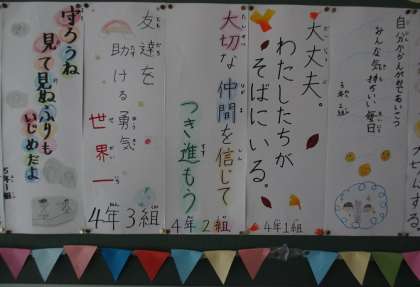 自分からかんがえてあいさつ
みんな気持ちいい毎日
大丈夫。
わたしたちが
そばにいる。
4年1組
大切な
仲間を信じて
つき進もう
4年2組
友達を
助ける勇気
世界一
4年3組
守ろうね
見て見ぬふりも
いじめだよ
5年1組